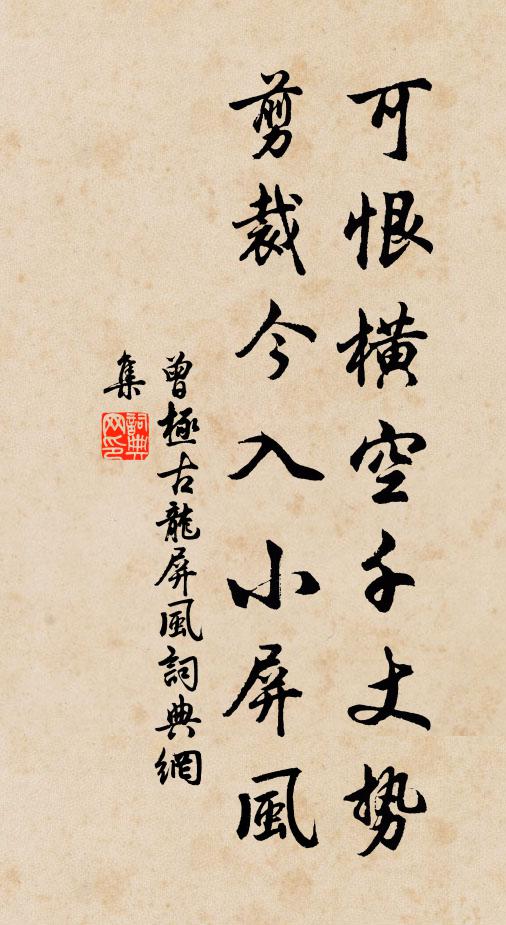 可恨橫空千丈勢
剪裁今入小屏風
曾極古龍屏風詞典網
集
詞典
网印